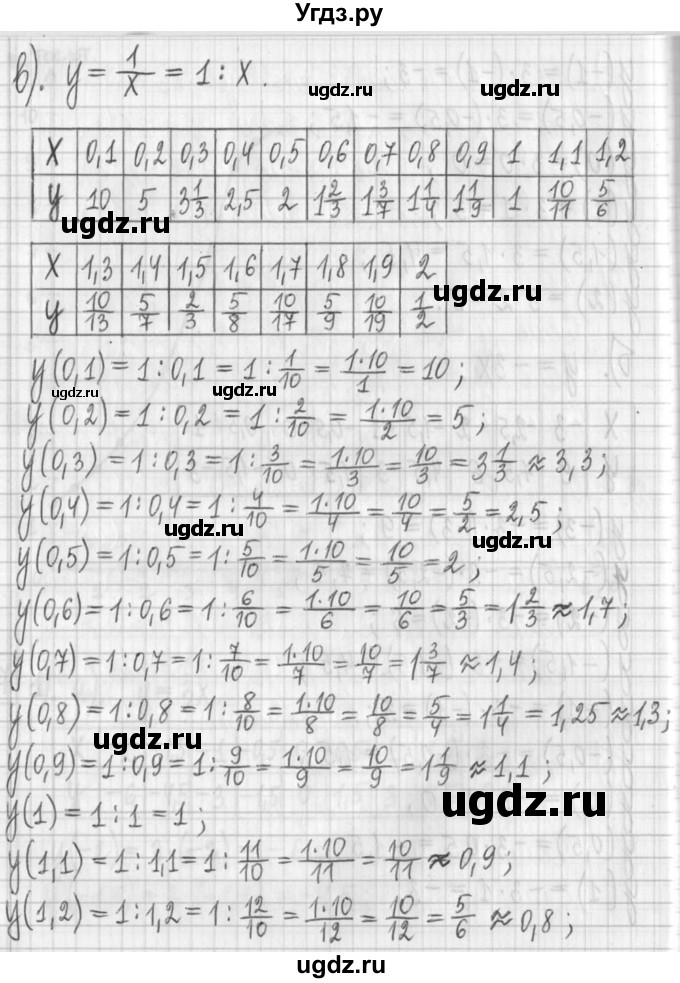 Угдз.ру
в). y = 1/x = 1 : x.
x 0,1 0,2 0,3 0,4 0,5 0,6 0,7 0,8 0,9 1 1,1 1,2
y 10 5 3 1/3 2,5 2 1 2/3 1 3/7 1 1/4 1 1/9 1 10/11 5/6
ugdz.ru ugdz.ru
x 1,3 1,4 1,5 1,6 1,7 1,8 1,9 2
y 10/13 5/7 2/3 5/8 10/17 5/9 10/19 1/2
ugdz.ru
y(0,1) = 1 : 0,1 = 1 : 1/10 = 1·10/1 = 10;
ugdz.ru ugdz.ru
y(0,2) = 1 : 0,2 = 1 : 2/10 = 1·10/2 = 5;
y(0,3) = 1 : 0,3 = 1 : 3/10 = 1·10/3 = 10/3 = 3 1/3 ≈ 3,3;
y(0,4) = 1 : 0,4 = 1 : 4/10 = 1·10/4 = 10/4 = 5/2 = 2,5;
ugdz.ru ugdz.ru
y(0,5) = 1 : 0,5 = 1 : 5/10 = 1·10/5 = 10/5 = 2;
y(0,6) = 1 : 0,6 = 1 : 6/10 = 1·10/6 = 10/6 = 5/3 = 1 2/3 ≈ 1,7;
y(0,7) = 1 : 0,7 = 1 : 7/10 = 1·10/7 = 10/7 = 1 3/7 ≈ 1,4;
y(0,8) = 1 : 0,8 = 1 : 8/10 = 1·10/8 = 10/8 = 5/4 = 1 1/4 = 1,25 ≈ 1,3;
ugdz.ru
y(0,9) = 1 : 0,9 = 1 : 9/10 = 1·10/9 = 10/9 = 1 1/9 ≈ 1,1;
ugdz.ru
y(1) = 1 : 1 = 1;
y(1,1) = 1 : 1,1 = 1 : 11/10 = 1·10/11 = 10/11 ≈ 0,9;
y(1,2) = 1 : 1,2 = 1 : 12/10 = 1·10/12 = 10/12 = 5/6 ≈ 0,8;
ugdz.ru